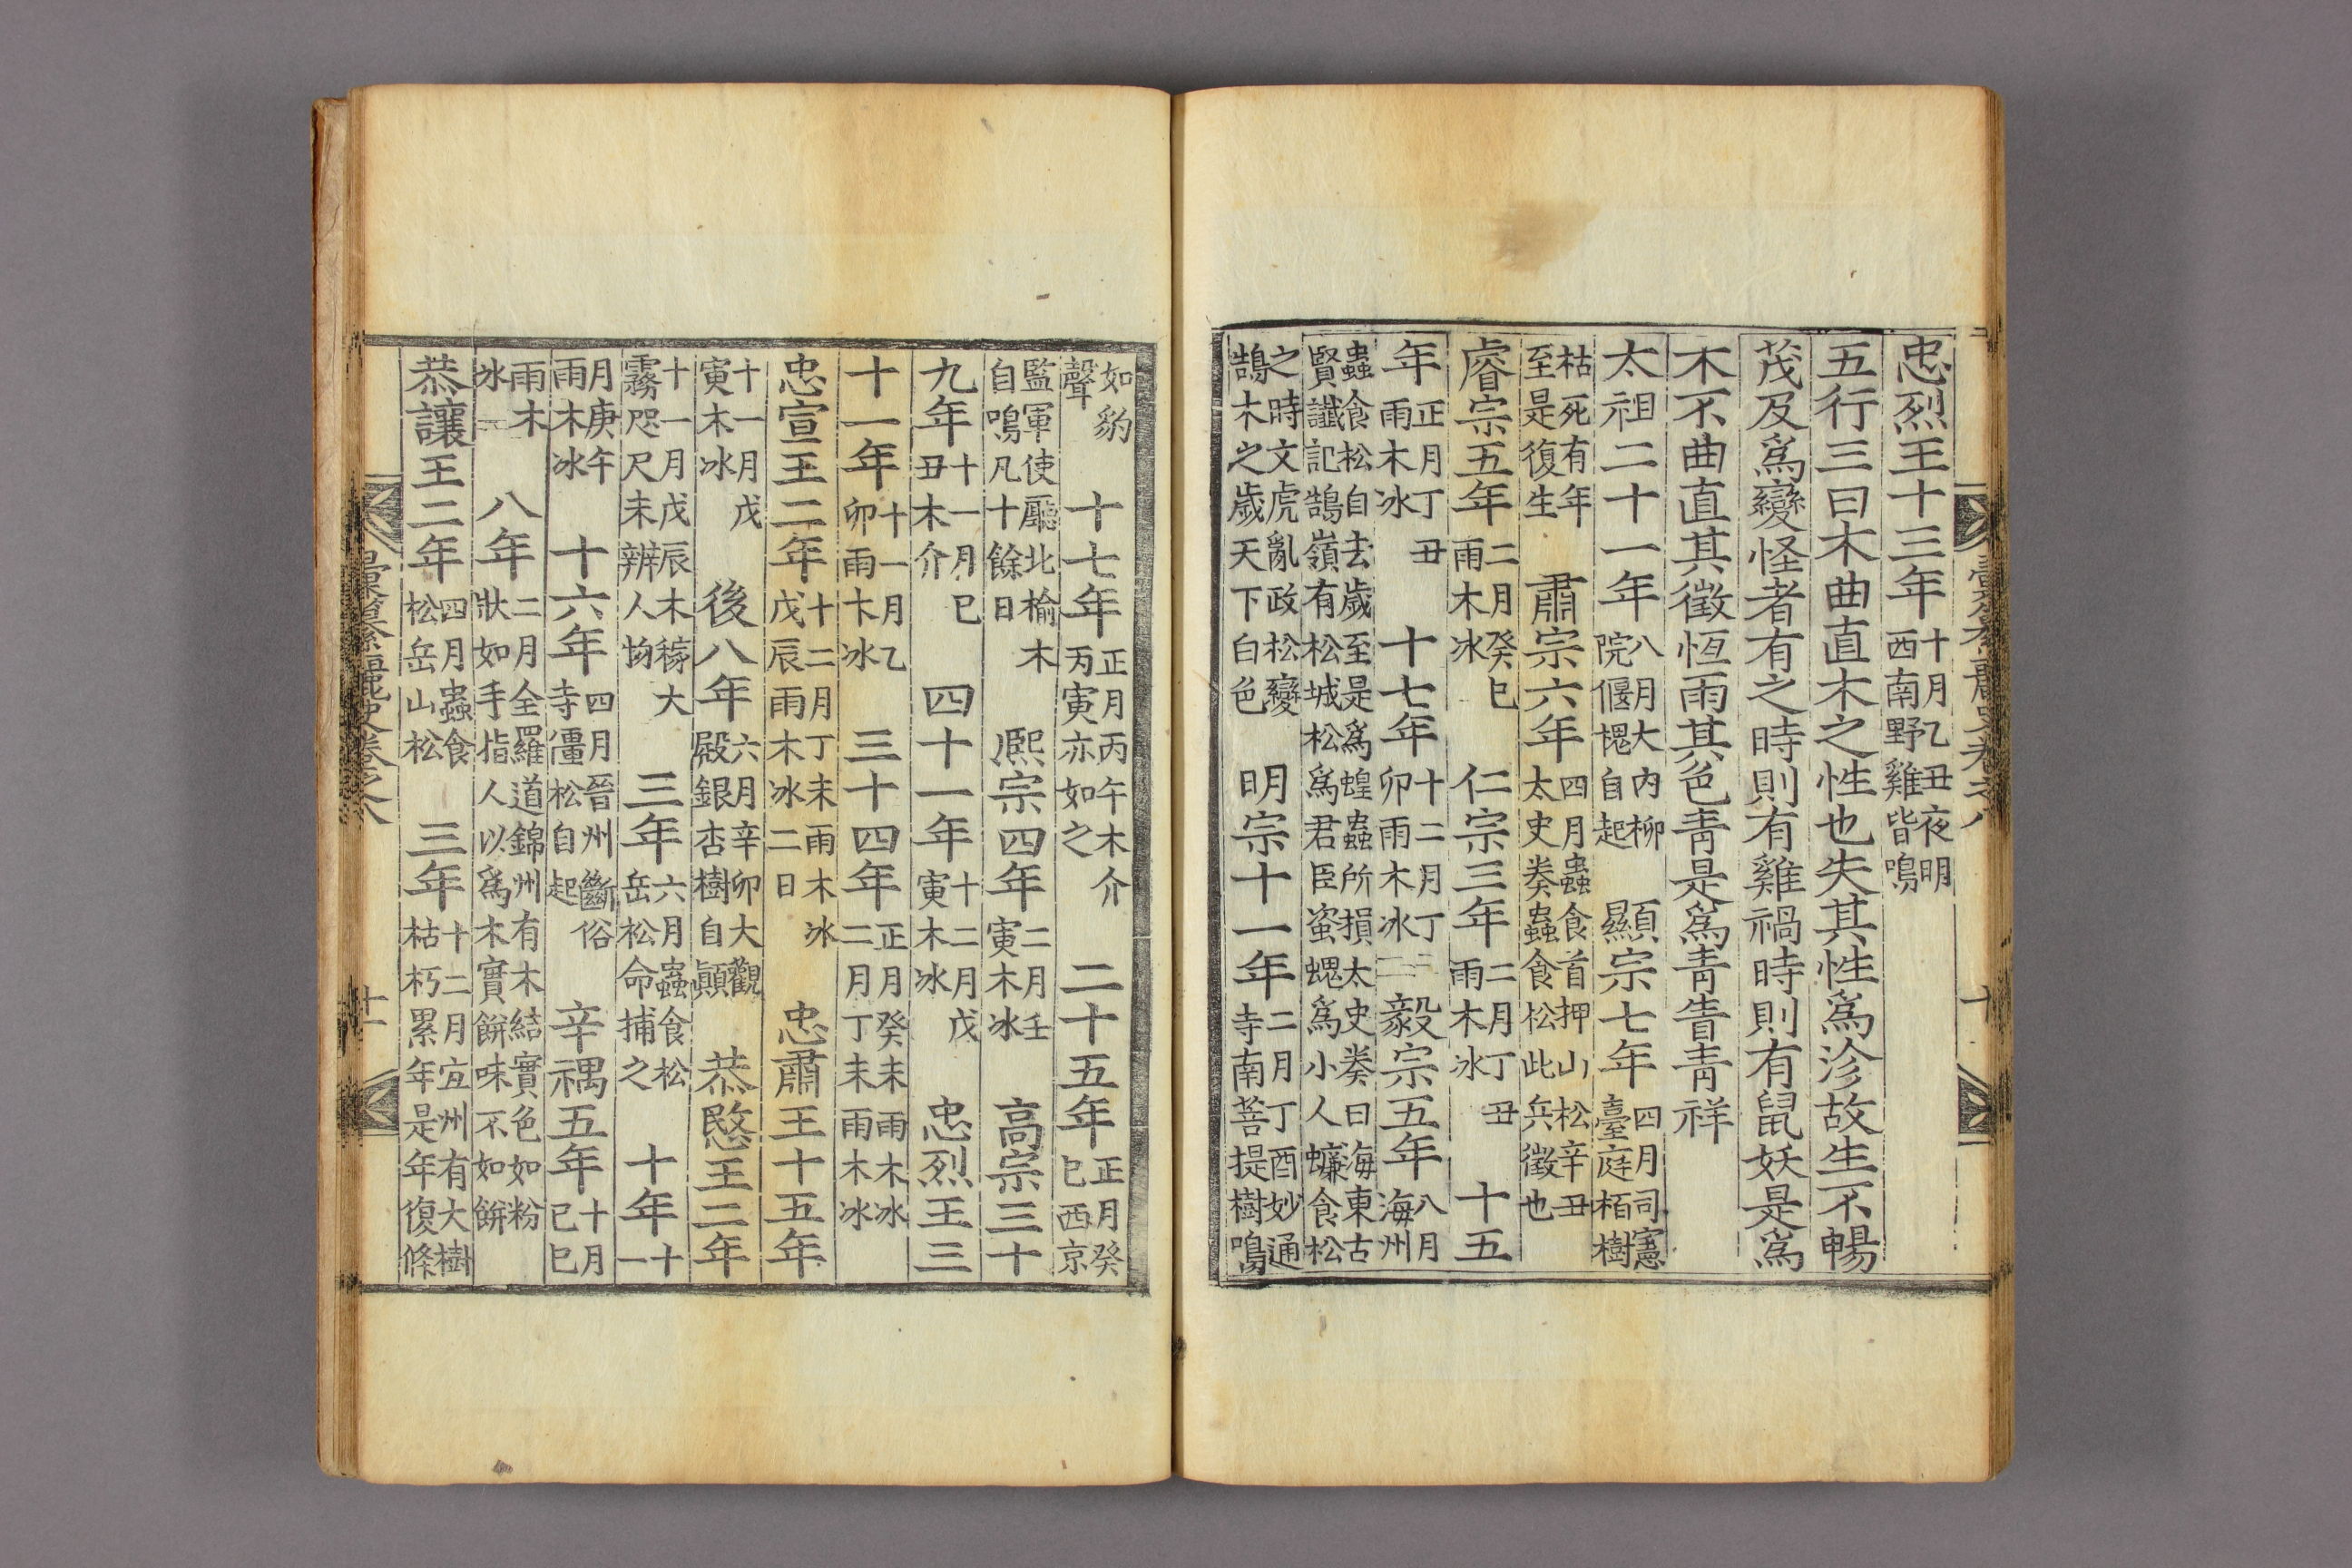 忠烈王十三年十月乙丑夜明西南野雞皆鳴
五行三曰木曲直木之性也失其性爲沴故生不暢
茂及爲變怪者有之時則有雞禍時則有鼠妖是爲
木不曲直其徵恆雨其色靑是爲靑眚靑祥
太祖二十一年八月大內柳院偃槐自起顯宗七年四月司憲臺庭栢樹
枯死有年至是復生肅宗六年四月蟲食首押山松辛丑太史奏蟲食松此兵徵也
睿宗五年二月癸巳雨木冰仁宗三年二月丁丑雨木冰十五
年正月丁丑雨木冰十七年十二月丁卯雨木冰毅宗五年八月海州
蟲食松自去歲至是爲蝗蟲所損太史奏曰海東古賢讖記鵠嶺有松城松爲君臣爲小人食松
之時文虎亂政松變鵠木之歲天下白色明宗十一年二月丁酉妙通寺南菩提樹鳴
如豹聲十七年正月丙午木介丙寅亦如之二十五年正月癸巳西京
監軍使廳北楡木自鳴凡十餘日熙宗四年二月壬寅木冰高宗三十
九年十一月己丑木介四十一年十二月戊寅木冰忠烈王三
十一年十一月乙卯雨木冰三十四年正月癸未雨木冰二月丁未雨木冰
忠宣王二年十二月丁未雨木冰戊辰雨木冰二日忠肅王十五年
十一月戊寅木冰後八年六月辛卯大觀殿銀杏樹自顚恭愍王二年
十一月戊辰木稼大霧咫尺未辨人物三年六月蟲食松岳松命捕之十年十一
月庚午雨木冰十六年四月晉州斷俗寺僵松自起辛禑五年十月己巳
雨木冰八年二月全羅道錦州有木結實色如粉狀如手指人以爲木實餠味不如餠
恭讓王二年四月蟲食松岳山松三年十二月宜州有大樹枯朽累年是年復條
彙纂麗史卷之八
十一